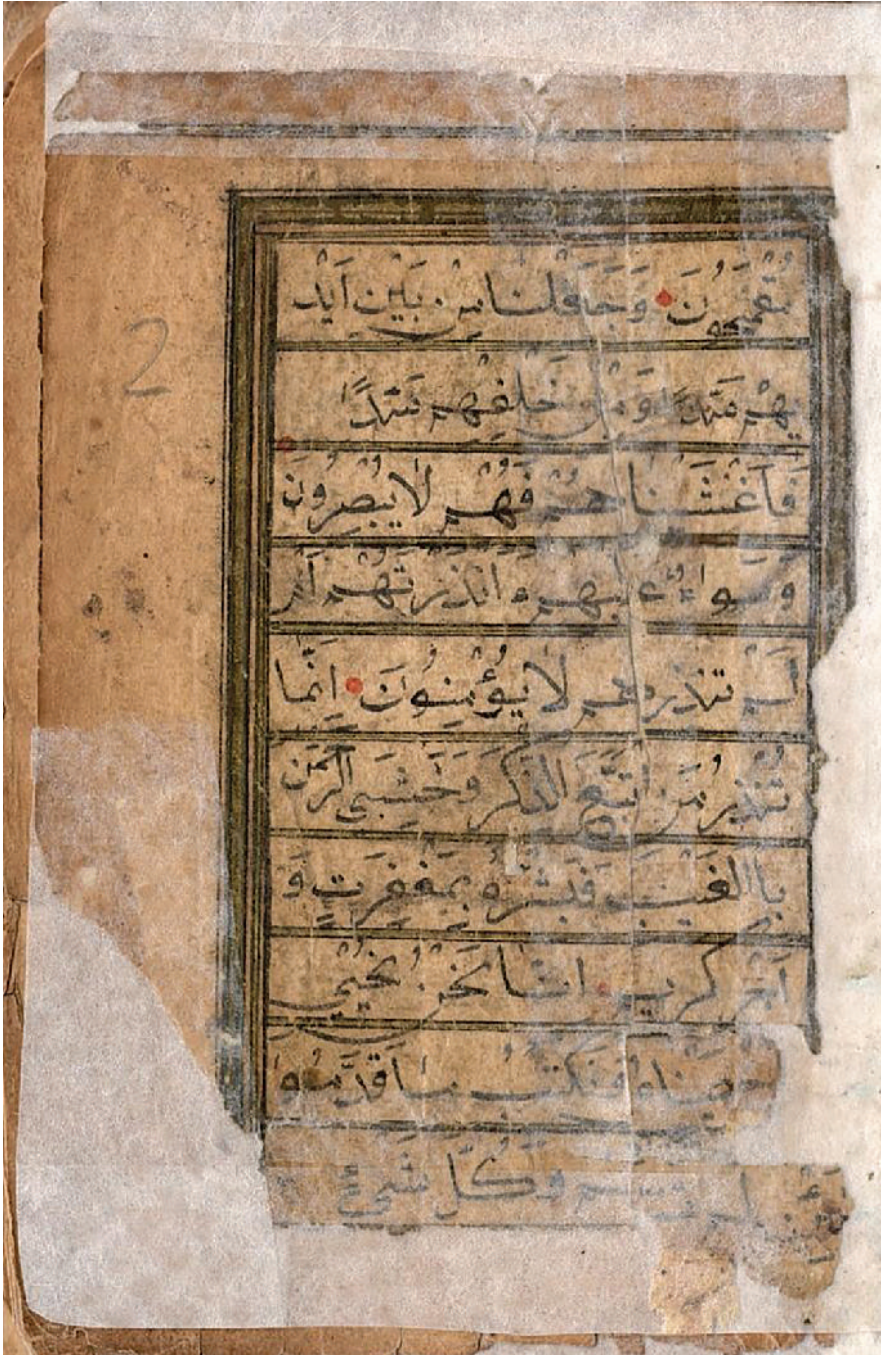 مُقْمَحُونَ وَجَعَلْنَا مِنْ بَيْنِ اَيْدِ
2
يهِمْ سَدًّا وَمِنْ خَلْفِهِمْ سَدًّا
فَاَغْشَيْنَاهُمْ فَهُمْ لَا يُبْصِرُونَ
وَسَوَاءٌ عَلَيْهِمْ ءَاَنْذَرْتَهُمْ اَمْ
لَمْ تُنْذِرْهُمْ لَا يُؤْمِنُونَ اِنَّمَا
تُنْذِرُ مَنِ اتَّبَعَ الذِّكْرَ وَخَشِىَ الرَّحْمٰنَ
بِاالْغَيْبِ فَبَشِّرْهُ بِمَغْفِرَتٍ وَ
اَجْرٍ كَرِيمٍ اِنَّا نَحْنُ نُحْيِي
وَنَكْتُبُ مَا قَدَّمُوا
وَكُلَّ شَيْءٍ